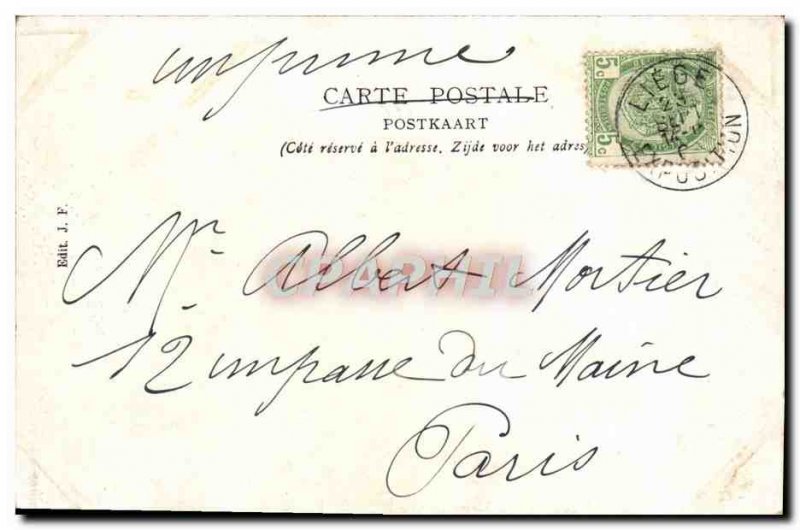 imprimé
CARTE POSTALE
POSTKAART
(Côté réservé à l'adresse. Zijde voor het adres
5c 5c
LIÉGE
EXPOSITION
Edit. J. F.
Mr. Albert Mortier
CPAPHIL
12 impasse du Maine
Paris